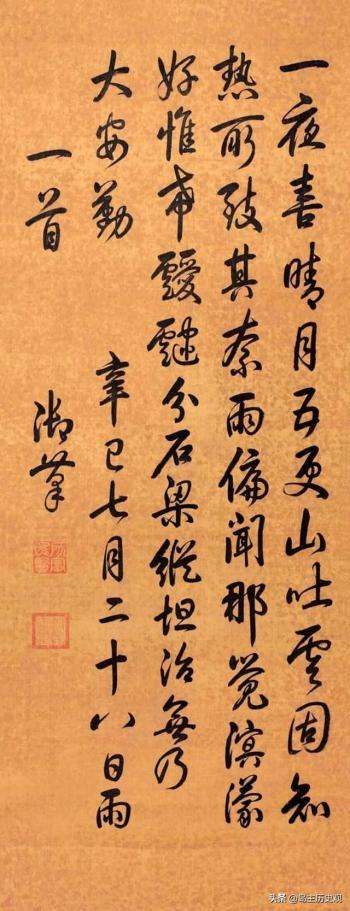 一夜喜晴月五更山吐雲固知
熱所致其奈雨偏聞那覺溟濛
好惟希靉靆分石梁縱坦治無乃
大安勤 辛巳七月二十八日雨
一首 御筆
头条 @岛主历史观